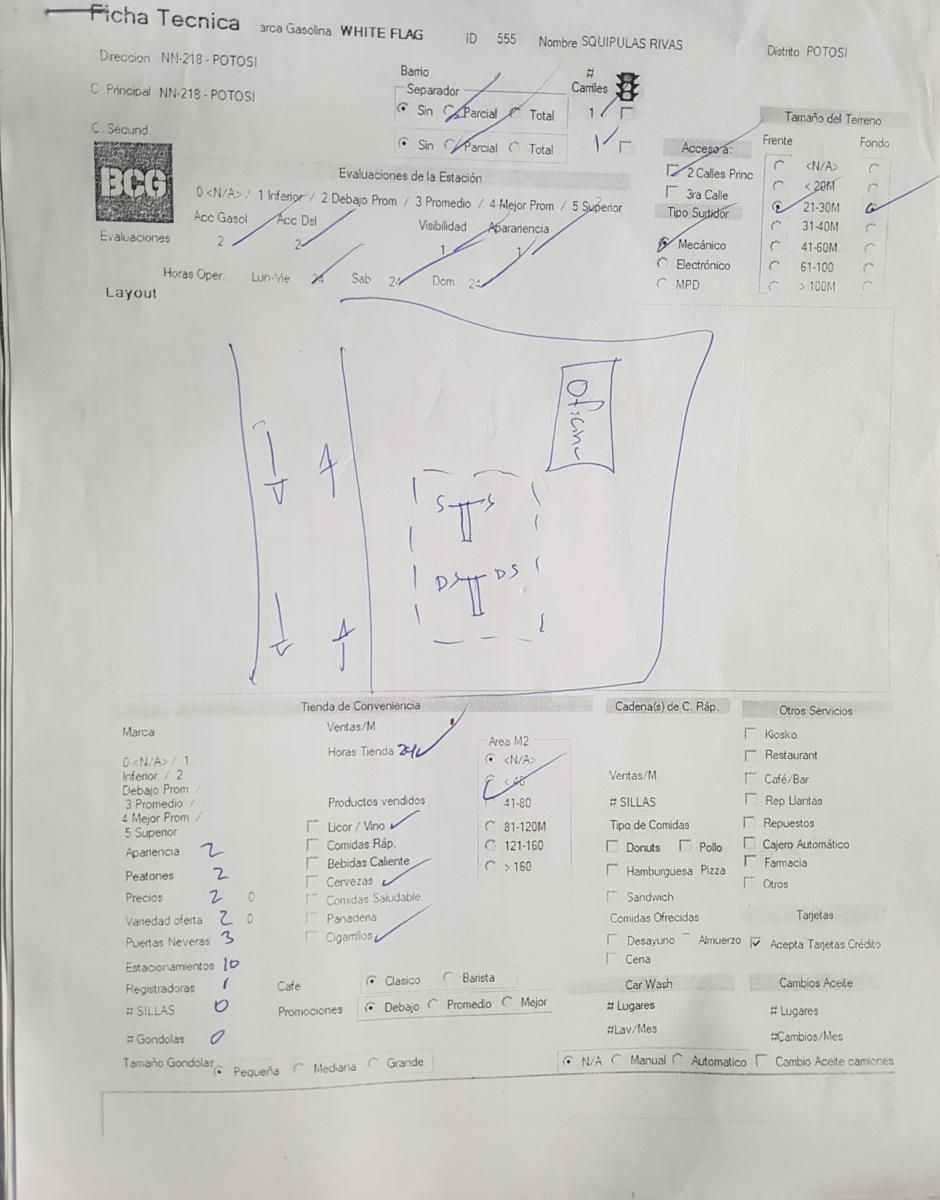 Ficha Tecnica arca Gasolina WHITE FLAG ID 555 Nombre SQUIPULAS RIVAS Distrito POTOSI
Direccion NN-218 - POTOSI
C Principal NN-218 - POTOSI
C. Secund.
Barrio
Separador
Sin Parcial Total
Sin Parcial Total
# Carriles
1
1
BCG
Evaluaciones de la Estación
0 <N/A> / 1 Inferior / 2 Debajo Prom / 3 Promedio / 4 Mejor Prom / 5 Superior
Acc Gasol Acc Dsl Visibilidad Apariencia
Evaluaciones 2 2 1 1
Horas Oper Lun-Vie 24 Sab 24 Dom 24
Acceso a:
2 Calles Princ
3ra Calle
Tipo Surtidor
Mecánico
Electrónico
MPD
Tamaño del Terreno
Frente Fondo
<N/A>
< 20M
21-30M
31-40M
41-60M
61-100
> 100M
Layout
S S
DS DS
Tienda de Conveniencia
Marca
0 <N/A> / 1
Inferior / 2
Debajo Prom /
3 Promedio /
4 Mejor Prom /
5 Superior
Apariencia 2
Peatones 2
Precios 2 0
Variedad oferta 2 0
Puertas Neveras 3
Estacionamientos 10
Registradoras 1
# SILLAS 0
# Gondolas 0
Tamaño Gondolar Pequeña Mediana Grande
Ventas/M
Horas Tienda
Productos vendidos
Licor / Vino
Comidas Ráp.
Bebidas Caliente
Cervezas
Comidas Saludable
Panaderia
Cigarrillos
Cafe Clasico Barista
Promociones Debajo Promedio Mejor
Area M2
<N/A>
41-80
81-120M
121-160
> 160
Cadena(s) de C. Ráp.
Ventas/M
# SILLAS
Tipo de Comidas
Donuts Pollo
Hamburguesa Pizza
Sandwich
Comidas Ofrecidas
Desayuno Almuerzo
Cena
Car Wash
# Lugares
#Lav/Mes
N/A Manual Automatico
Otros Servicios
Kiosko
Restaurant
Café/Bar
Rep Llantas
Repuestos
Cajero Automático
Farmacia
Otros
Tarjetas
Acepta Tarjetas Crédito
Cambios Aceite
# Lugares
#Cambios/Mes
Cambio Aceite camiones